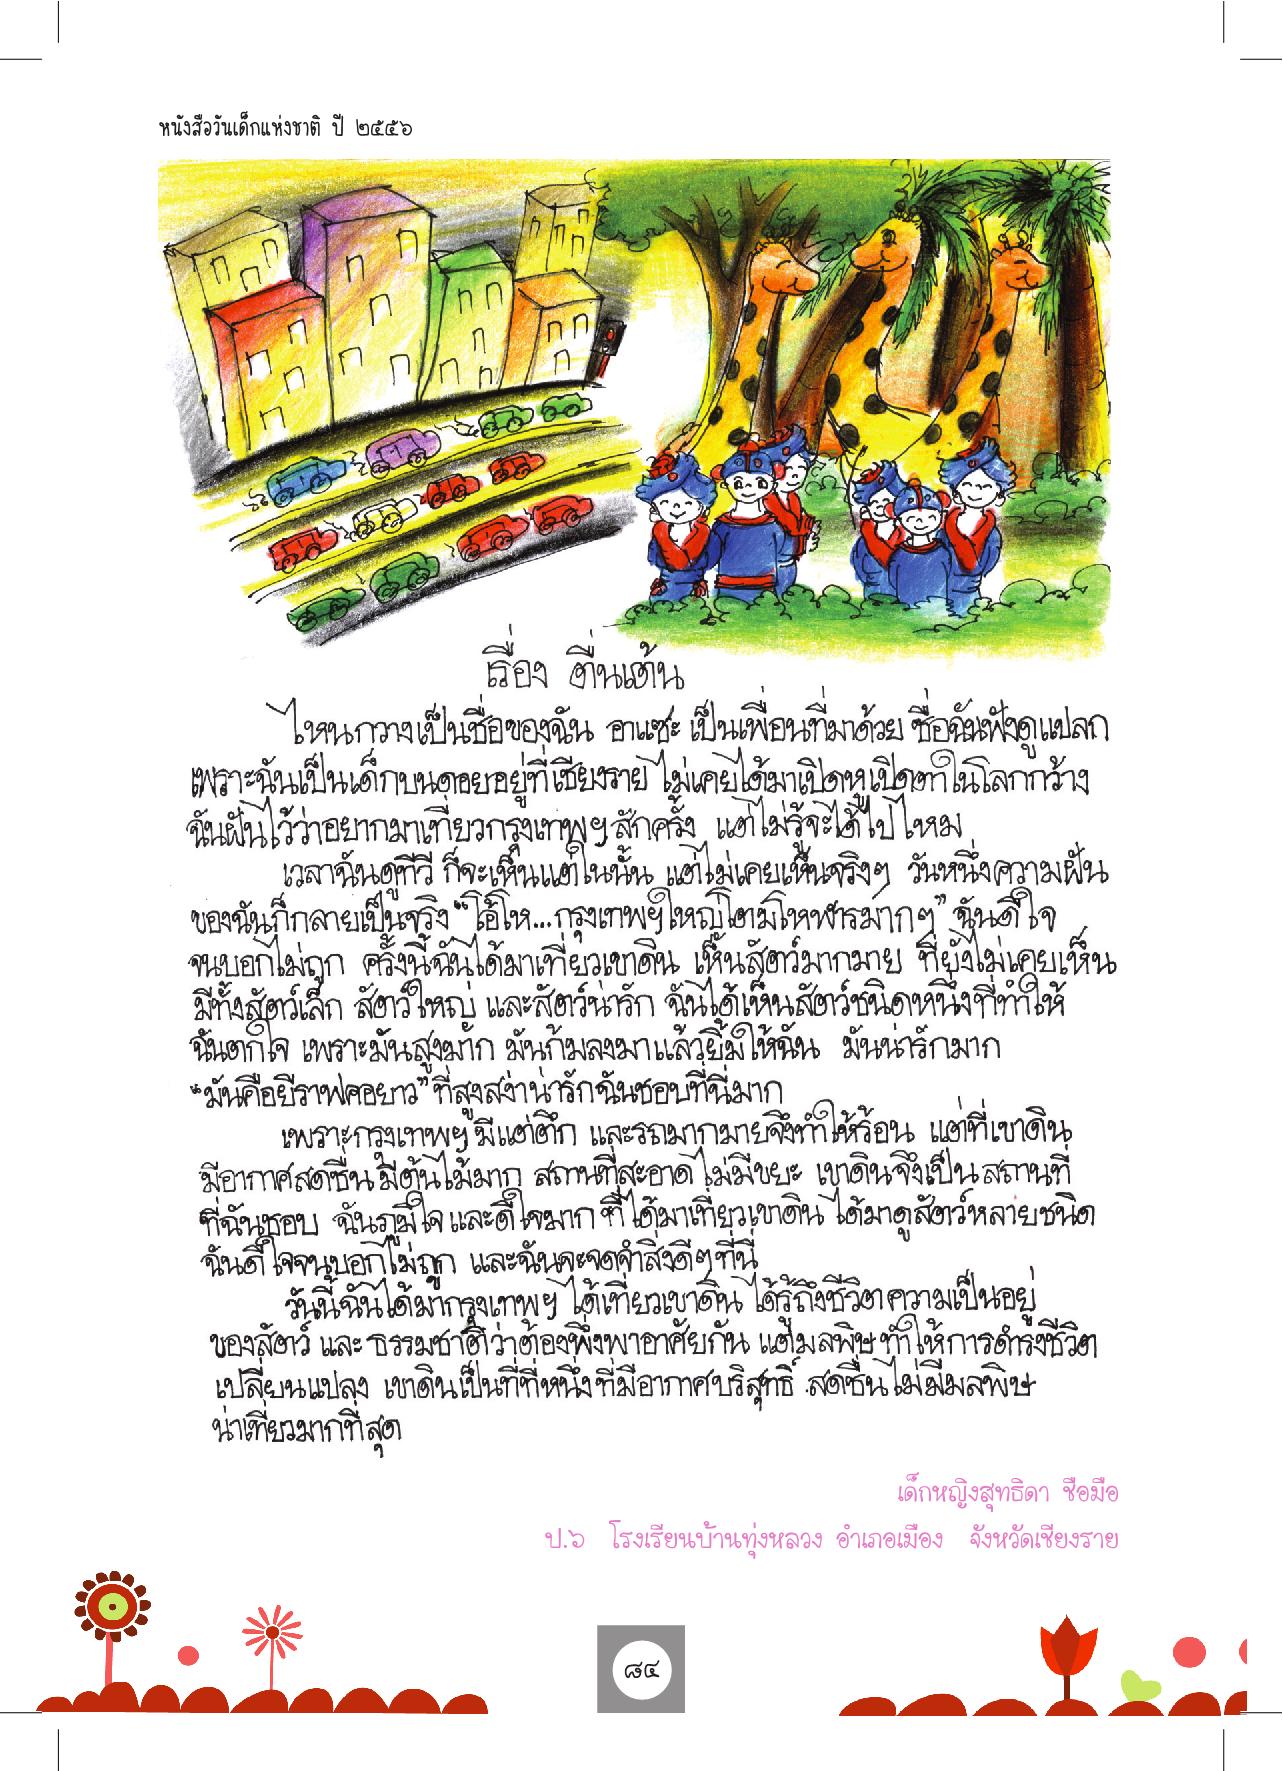 หนังสือวันเด็กแห่งชาติ ปี ๒๕๕๖
เรื่อง ตื่นเต้น
ไหนกวางเป็นชื่อของฉัน อาแซะ เป็นเพื่อนที่มาด้วย ชื่อฉันฟังดูแปลก
เพราะฉันเป็นเด็กบนดอยอยู่ที่เชียงราย ไม่เคยได้มาเปิดหูเปิดตาในโลกกว้าง
ฉันฝันไว้ว่าอยากมาเที่ยวกรุงเทพฯสักครั้ง แต่ไม่รู้จะได้ไปไหม
เวลาฉันดูทีวี ก็จะเห็นแต่ในนั้น แต่ไม่เคยเห็นจริงๆ วันหนึ่งความฝัน
ของฉันก็กลายเป็นจริง “โอ้โห...กรุงเทพฯใหญ่โตมโหฬารมากๆ” ฉันดีใจ
จนบอกไม่ถูก ครั้งนี้ฉันได้มาเที่ยวเขาดิน เห็นสัตว์มากมาย ที่ยังไม่เคยเห็น
มีทั้งสัตว์เล็ก สัตว์ใหญ่ และสัตว์น่ารัก ฉันได้เห็นสัตว์ชนิดหนึ่งที่ทำให้
ฉันตกใจ เพราะมันสูงมาก มันก้มลงมาแล้วยิ้มให้ฉัน มันน่ารักมาก
“มันคือยีราฟคอยาว” ที่สูงสง่าน่ารักฉันชอบที่นี่มาก
เพราะกรุงเทพฯมีแต่ตึก และรถมากมายจึงทำให้ร้อน แต่ที่เขาดิน
มีอากาศสดชื่น มีต้นไม้มาก สถานที่สะอาด ไม่มีขยะ เขาดินจึงเป็นสถานที่
ที่ฉันชอบ ฉันภูมิใจและดีใจมาก ที่ได้มาเที่ยวเขาดิน ได้มาดูสัตว์หลายชนิด
ฉันดีใจจนบอกไม่ถูก และฉันจะจดจำสิ่งดีๆที่นี่
วันนี้ฉันได้มากรุงเทพฯ ได้เที่ยวเขาดิน ได้รู้ถึงชีวิตความเป็นอยู่
ของสัตว์ และธรรมชาติว่าต้องพึ่งพาอาศัยกัน แต่มลพิษทำให้การดำรงชีวิต
เปลี่ยนแปลง เขาดินเป็นที่ที่หนึ่งที่มีอากาศบริสุทธิ์ สดชื่นไม่มีมลพิษ
น่าเที่ยวมากที่สุด
เด็กหญิงสุทธิดา ชือมือ
ป.๖ โรงเรียนบ้านทุ่งหลวง อำเภอเมือง จังหวัดเชียงราย
๘๔